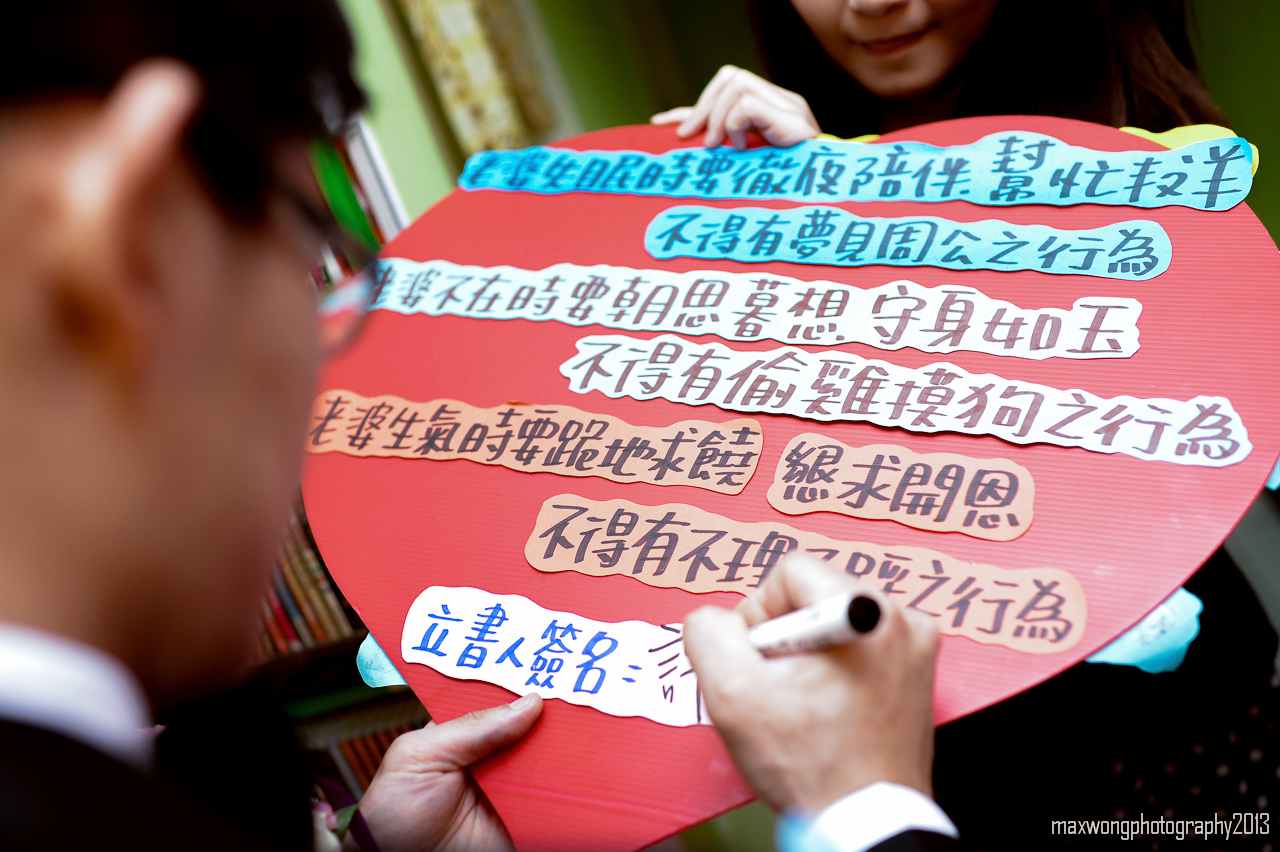 老婆失眠時要徹夜陪伴 幫忙 羊
不得有夢見周公之行為
老婆不在時要朝思暮想 守身如玉
不得有偷雞摸狗之行為
老婆生氣時要跪地求饒 懇求開恩
不得有不理不睬之行為
立書人簽名:
maxwongphotography2013